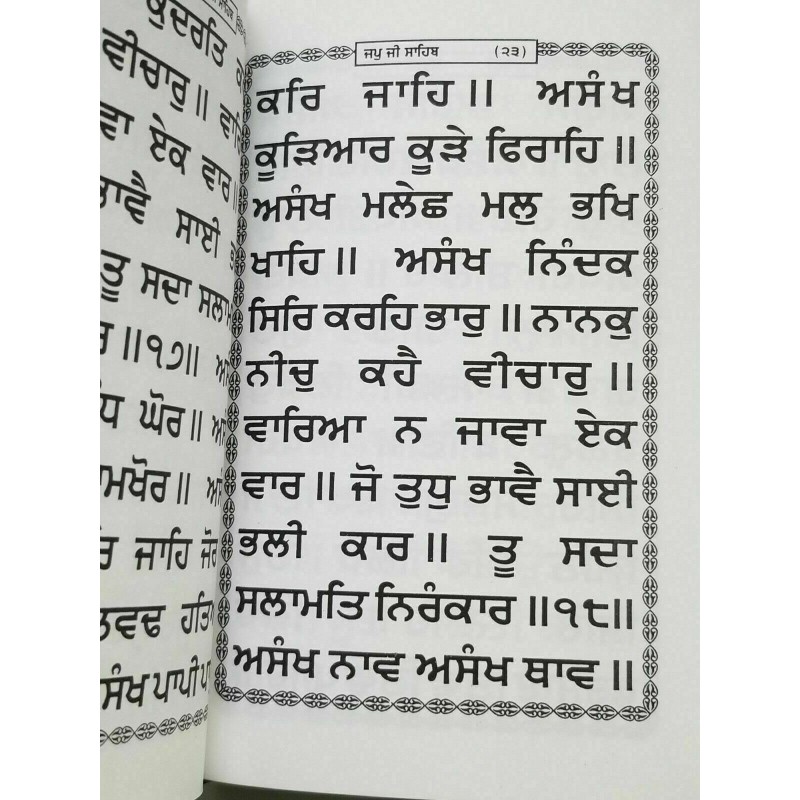 ਕੁਦਰਤਿ
ਵੀਚਾਰੁ॥
ਏਕ ਵਾਰ॥
ਸਾਈ
ਤੂ ਸਦਾ
॥੧੭॥
ਘੋਰ॥
ਜਾਹਿ ਜੋਰ
ਪਾਪੀ
ਜਪੁ ਜੀ ਸਾਹਿਬ (੨੩)
ਕਰਿ ਜਾਹਿ॥ ਅਸੰਖ
ਕੂੜਿਆਰ ਕੂੜੇ ਫਿਰਾਹਿ॥
ਅਸੰਖ ਮਲੇਛ ਮਲੁ ਭਖਿ
ਖਾਹਿ॥ ਅਸੰਖ ਨਿੰਦਕ
ਸਿਰਿ ਕਰਹਿ ਭਾਰੁ॥ ਨਾਨਕੁ
ਨੀਚੁ ਕਹੈ ਵੀਚਾਰੁ॥
ਵਾਰਿਆ ਨ ਜਾਵਾ ਏਕ
ਵਾਰ॥ ਜੋ ਤੁਧੁ ਭਾਵੈ ਸਾਈ
ਭਲੀ ਕਾਰ॥ ਤੂ ਸਦਾ
ਸਲਾਮਤਿ ਨਿਰੰਕਾਰ॥੧੮॥
ਅਸੰਖ ਨਾਵ ਅਸੰਖ ਥਾਵ॥